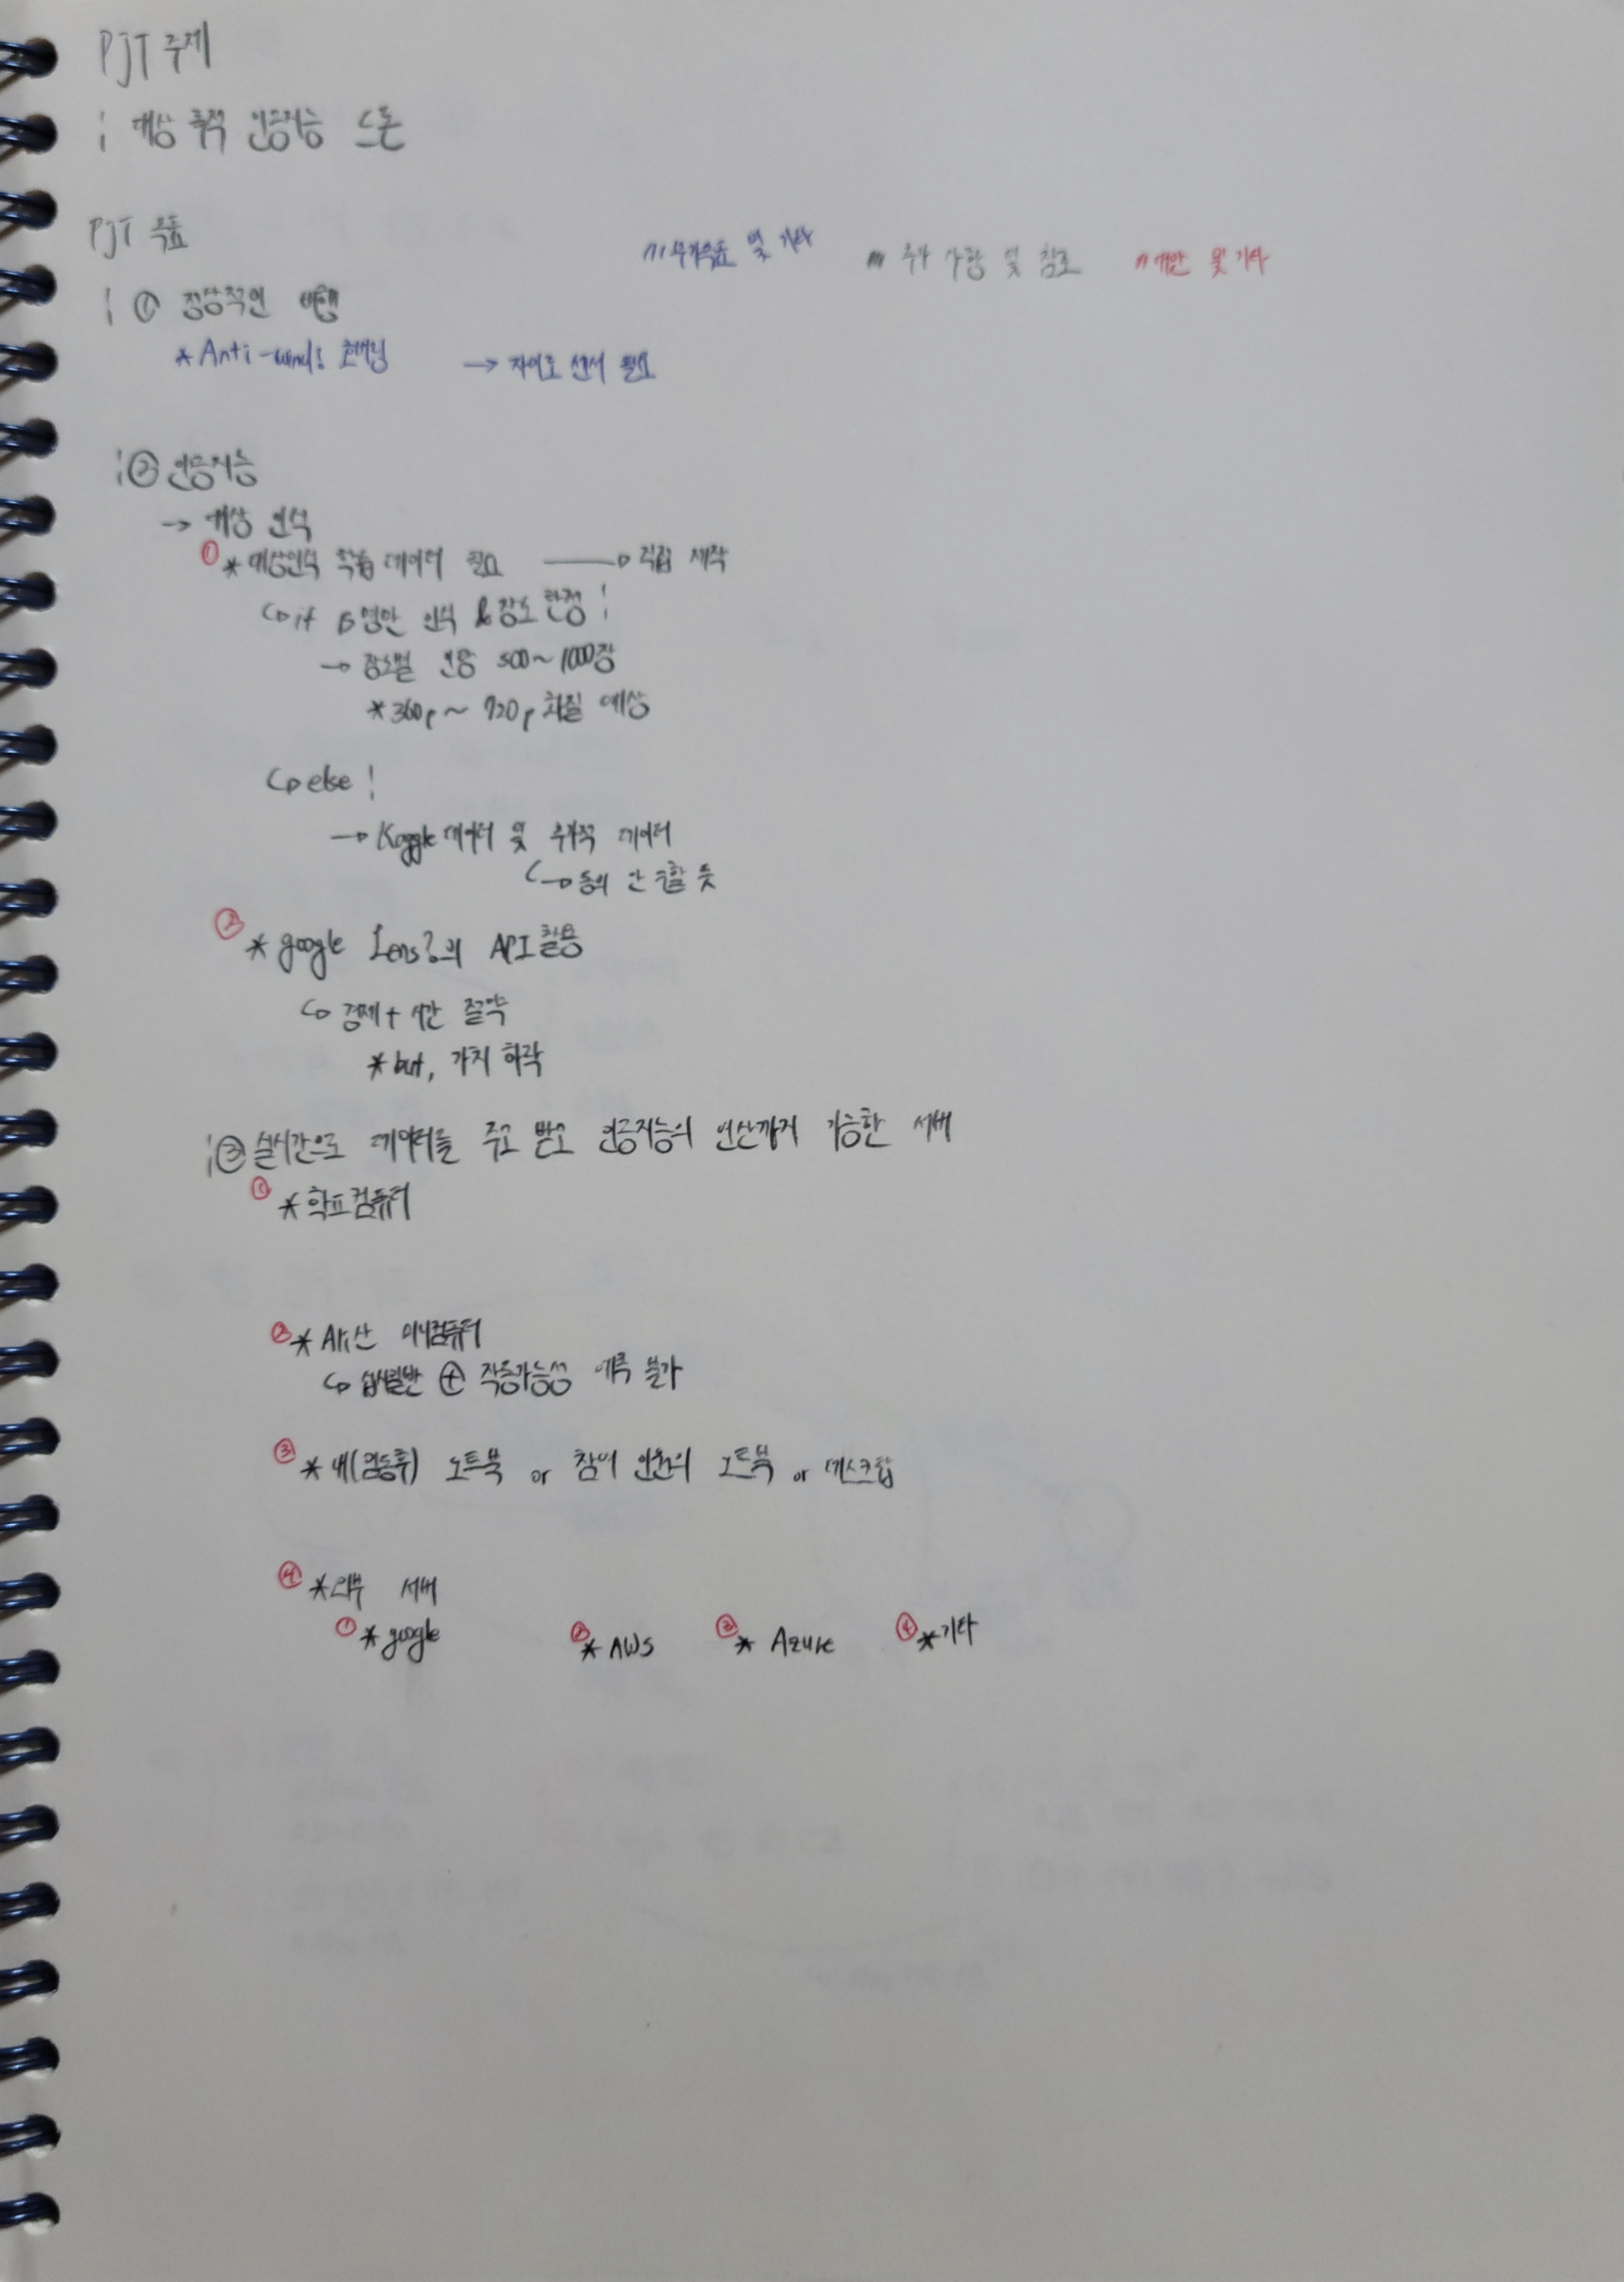 PJT 주제
: 대상 추적 인공지능 드론
PJT 목표
// 부가목표 및 기타 // 추가 사항 및 참조 // 대안 및 기타
: ① 정상적인 비행
* Anti-wind! 호버링 → 자이로 센서 필요
: ② 인공지능
→ 대상 인식
① * 대상인식 학습 데이터 필요 → 직접 제작
↳ if 5명만 인식 & 장소 한정!
→ 장소별 인당 500~1000장
* 360p ~ 720p 화질 예상
↳ else!
→ Kaggle 데이터 및 추가적 데이터
↳ 동의 안 구할 듯
② * google Lens?의 API 활용
↳ 경제 + 시간 절약
* but, 가치 하락
: ③ 실시간으로 데이터를 주고 받고 인공지능의 연산까지 가능한 서버
① * 학교컴퓨터
② * Ali산 미니컴퓨터
↳ ⊕ 작동가능성 예측 불가
③ * 내( ) 노트북 or 참여 인원의 노트북 or 데스크탑
④ * 외부 서버
① * google ② * AWS ③ * Azure ④ * 기타